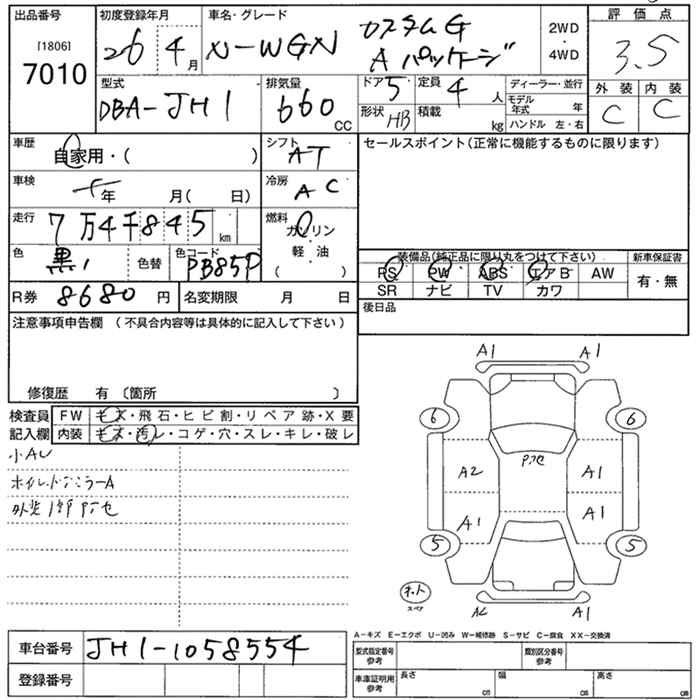 出品番号 初度登録年月 車名・グレード 評価点
[1806]
7010
26 4月
N-WGN カスタムG
Aパッケージ
2WD
・
4WD
3.5
外装 内装
C C
型式 排気量 ドア 定員 ディーラー・並行
DBA-JH1 660 CC 5 4人
モデル年式 年
形状 HB 積載 kg ハンドル 左・右
車歴 シフト セールスポイント(正常に機能するものに限ります)
自家用・( ) AT
車検 冷房
年 月( 日) AC
走行 燃料
7万4千845km ガソリン
軽・油
( )
色 色替 色コード
黒 PB85P
装備品(純正品に限り丸をつけて下さい) 新車保証書
PS PW ABS エアB AW 有・無
SR ナビ TV カワ
R券 8680円 名変期限 月 日 後日品
注意事項申告欄 (不具合内容等は具体的に記入して下さい)
修復歴 有 〔箇所 〕
検査員 FW キズ・飛石・ヒビ割・リペア跡・X要
記入欄 内装 キズ・汚レ・コゲ・穴・スレ・キレ・破レ
小AU
ホイルキャップミラーA
A1 A1
6 6
A2 A1
A1 A1
5 5
ネット
スペア
A2 A1
A-キズ E-エクボ U-凹み W-補修跡 S-サビ C-腐食 XX-交換済
車台番号 JH1-1058554
型式指定番号 参考 類別区分番号 参考
登録番号
車庫証明用 参考 長さ cm 幅 cm 高さ cm